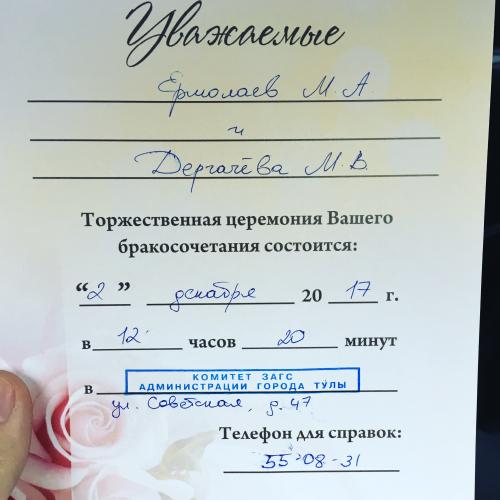 Уважаемые
Ермолаев М. А.
и
Дергачёва М. В.
Торжественная церемония Вашего
бракосочетания состоится:
“2” декабря 2017 г.
в 12 часов 20 минут
в КОМИТЕТ ЗАГС
АДМИНИСТРАЦИИ ГОРОДА ТУЛЫ
ул. Советская, д. 47
Телефон для справок:
55-08-31